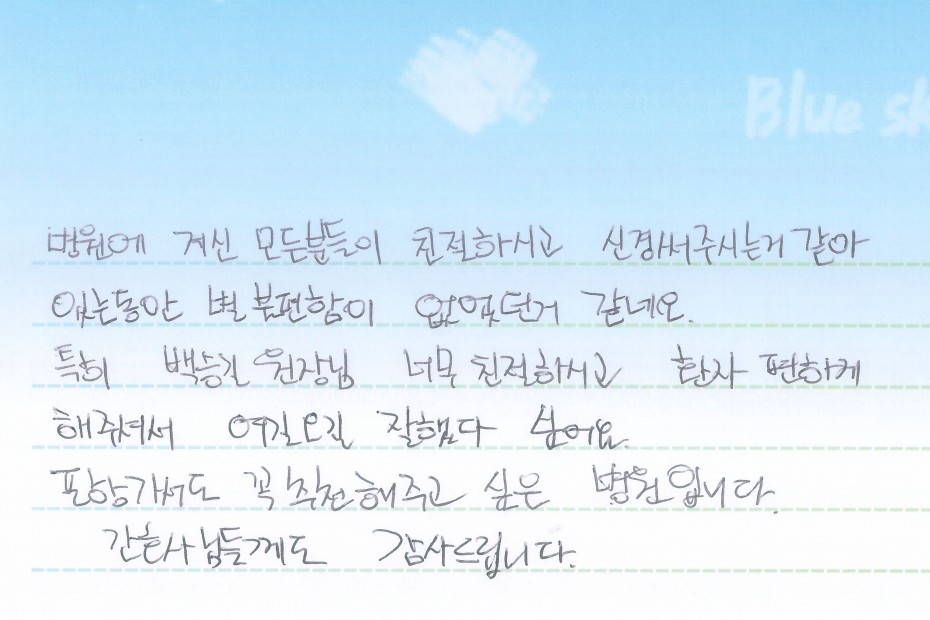 Blue sk
병원에 계신 모든분들이 친절하시고 신경써주시는거 같아
있는동안 별 불편함이 없었던거 같네요.
특히 백승길 원장님 너무 친절하시고 환자 편하게
해주셔서 여길오길 잘했다 싶어요.
포항가서도 꼭 추천해주고 싶은 병원입니다.
간호사님들께도 감사드립니다.